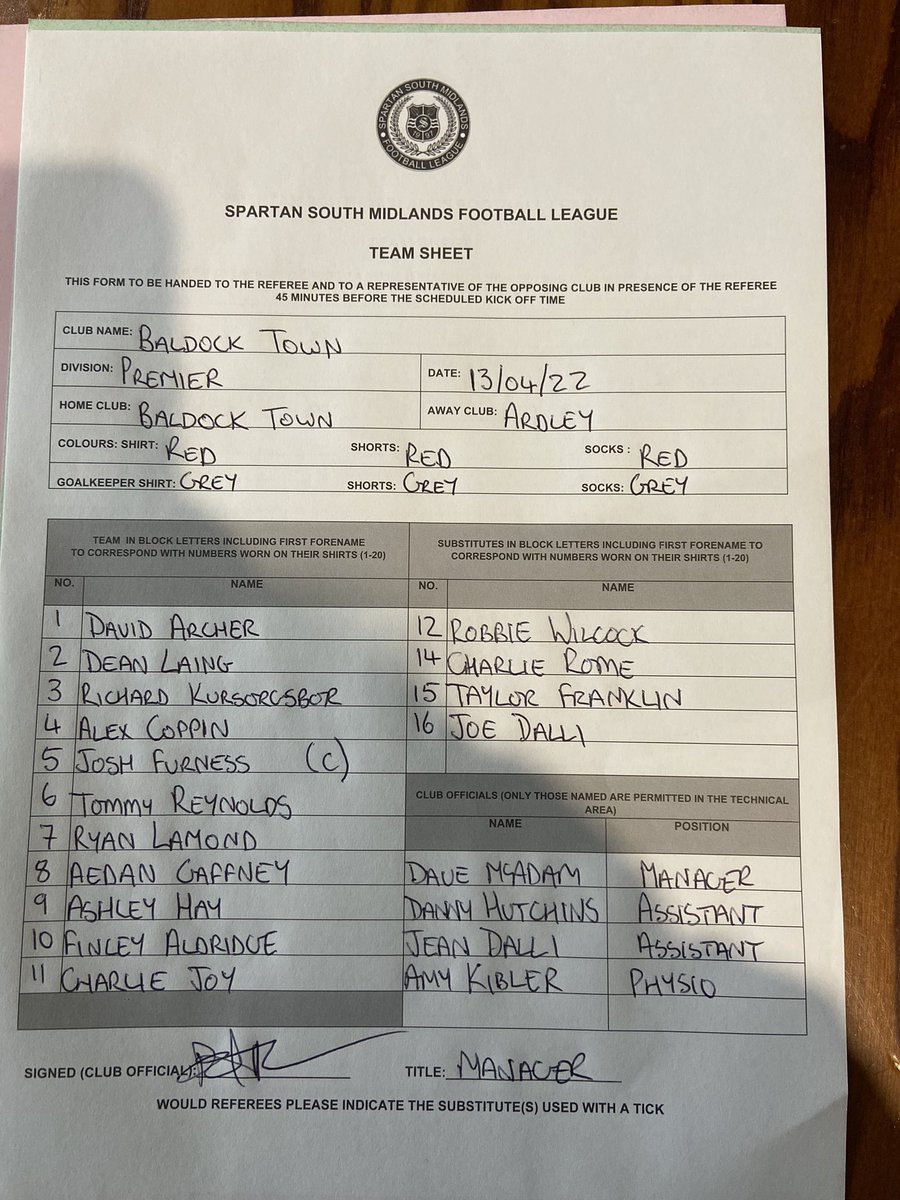 SPARTAN SOUTH MIDLANDS
FOOTBALL LEAGUE
SPARTAN SOUTH MIDLANDS FOOTBALL LEAGUE
TEAM SHEET
THIS FORM TO BE HANDED TO THE REFEREE AND TO A REPRESENTATIVE OF THE OPPOSING CLUB IN PRESENCE OF THE REFEREE
45 MINUTES BEFORE THE SCHEDULED KICK OFF TIME
CLUB NAME: BALDOCK TOWN
DIVISION: PREMIER DATE: 13/04/22
HOME CLUB: BALDOCK TOWN AWAY CLUB: ARDLEY
COLOURS: SHIRT: RED SHORTS: RED SOCKS : RED
GOALKEEPER SHIRT: GREY SHORTS: GREY SOCKS: GREY
TEAM IN BLOCK LETTERS INCLUDING FIRST FORENAME
TO CORRESPOND WITH NUMBERS WORN ON THEIR SHIRTS (1-20)
NO. NAME
1 DAVID ARCHER
2 DEAN LAING
3 RICHARD KURSORGSBOR
4 ALEX COPPIN
5 JOSH FURNESS (C)
6 TOMMY REYNOLDS
7 RYAN LAMOND
8 AEDAN GAFFNEY
9 ASHLEY HAY
10 FINLEY ALDRIDGE
11 CHARLIE JOY
SUBSTITUTES IN BLOCK LETTERS INCLUDING FIRST FORENAME TO
CORRESPOND WITH NUMBERS WORN ON THEIR SHIRTS (1-20)
NO. NAME
12 ROBBIE WILCOCK
14 CHARLIE ROME
15 TAYLOR FRANKLIN
16 JOE DALLI
CLUB OFFICIALS (ONLY THOSE NAMED ARE PERMITTED IN THE TECHNICAL
AREA)
NAME POSITION
DAVE MCADAM MANAGER
DANNY HUTCHINS ASSISTANT
JEAN DALLI ASSISTANT
AMY KIBLER PHYSIO
SIGNED (CLUB OFFICIAL): TITLE: MANAGER
WOULD REFEREES PLEASE INDICATE THE SUBSTITUTE(S) USED WITH A TICK